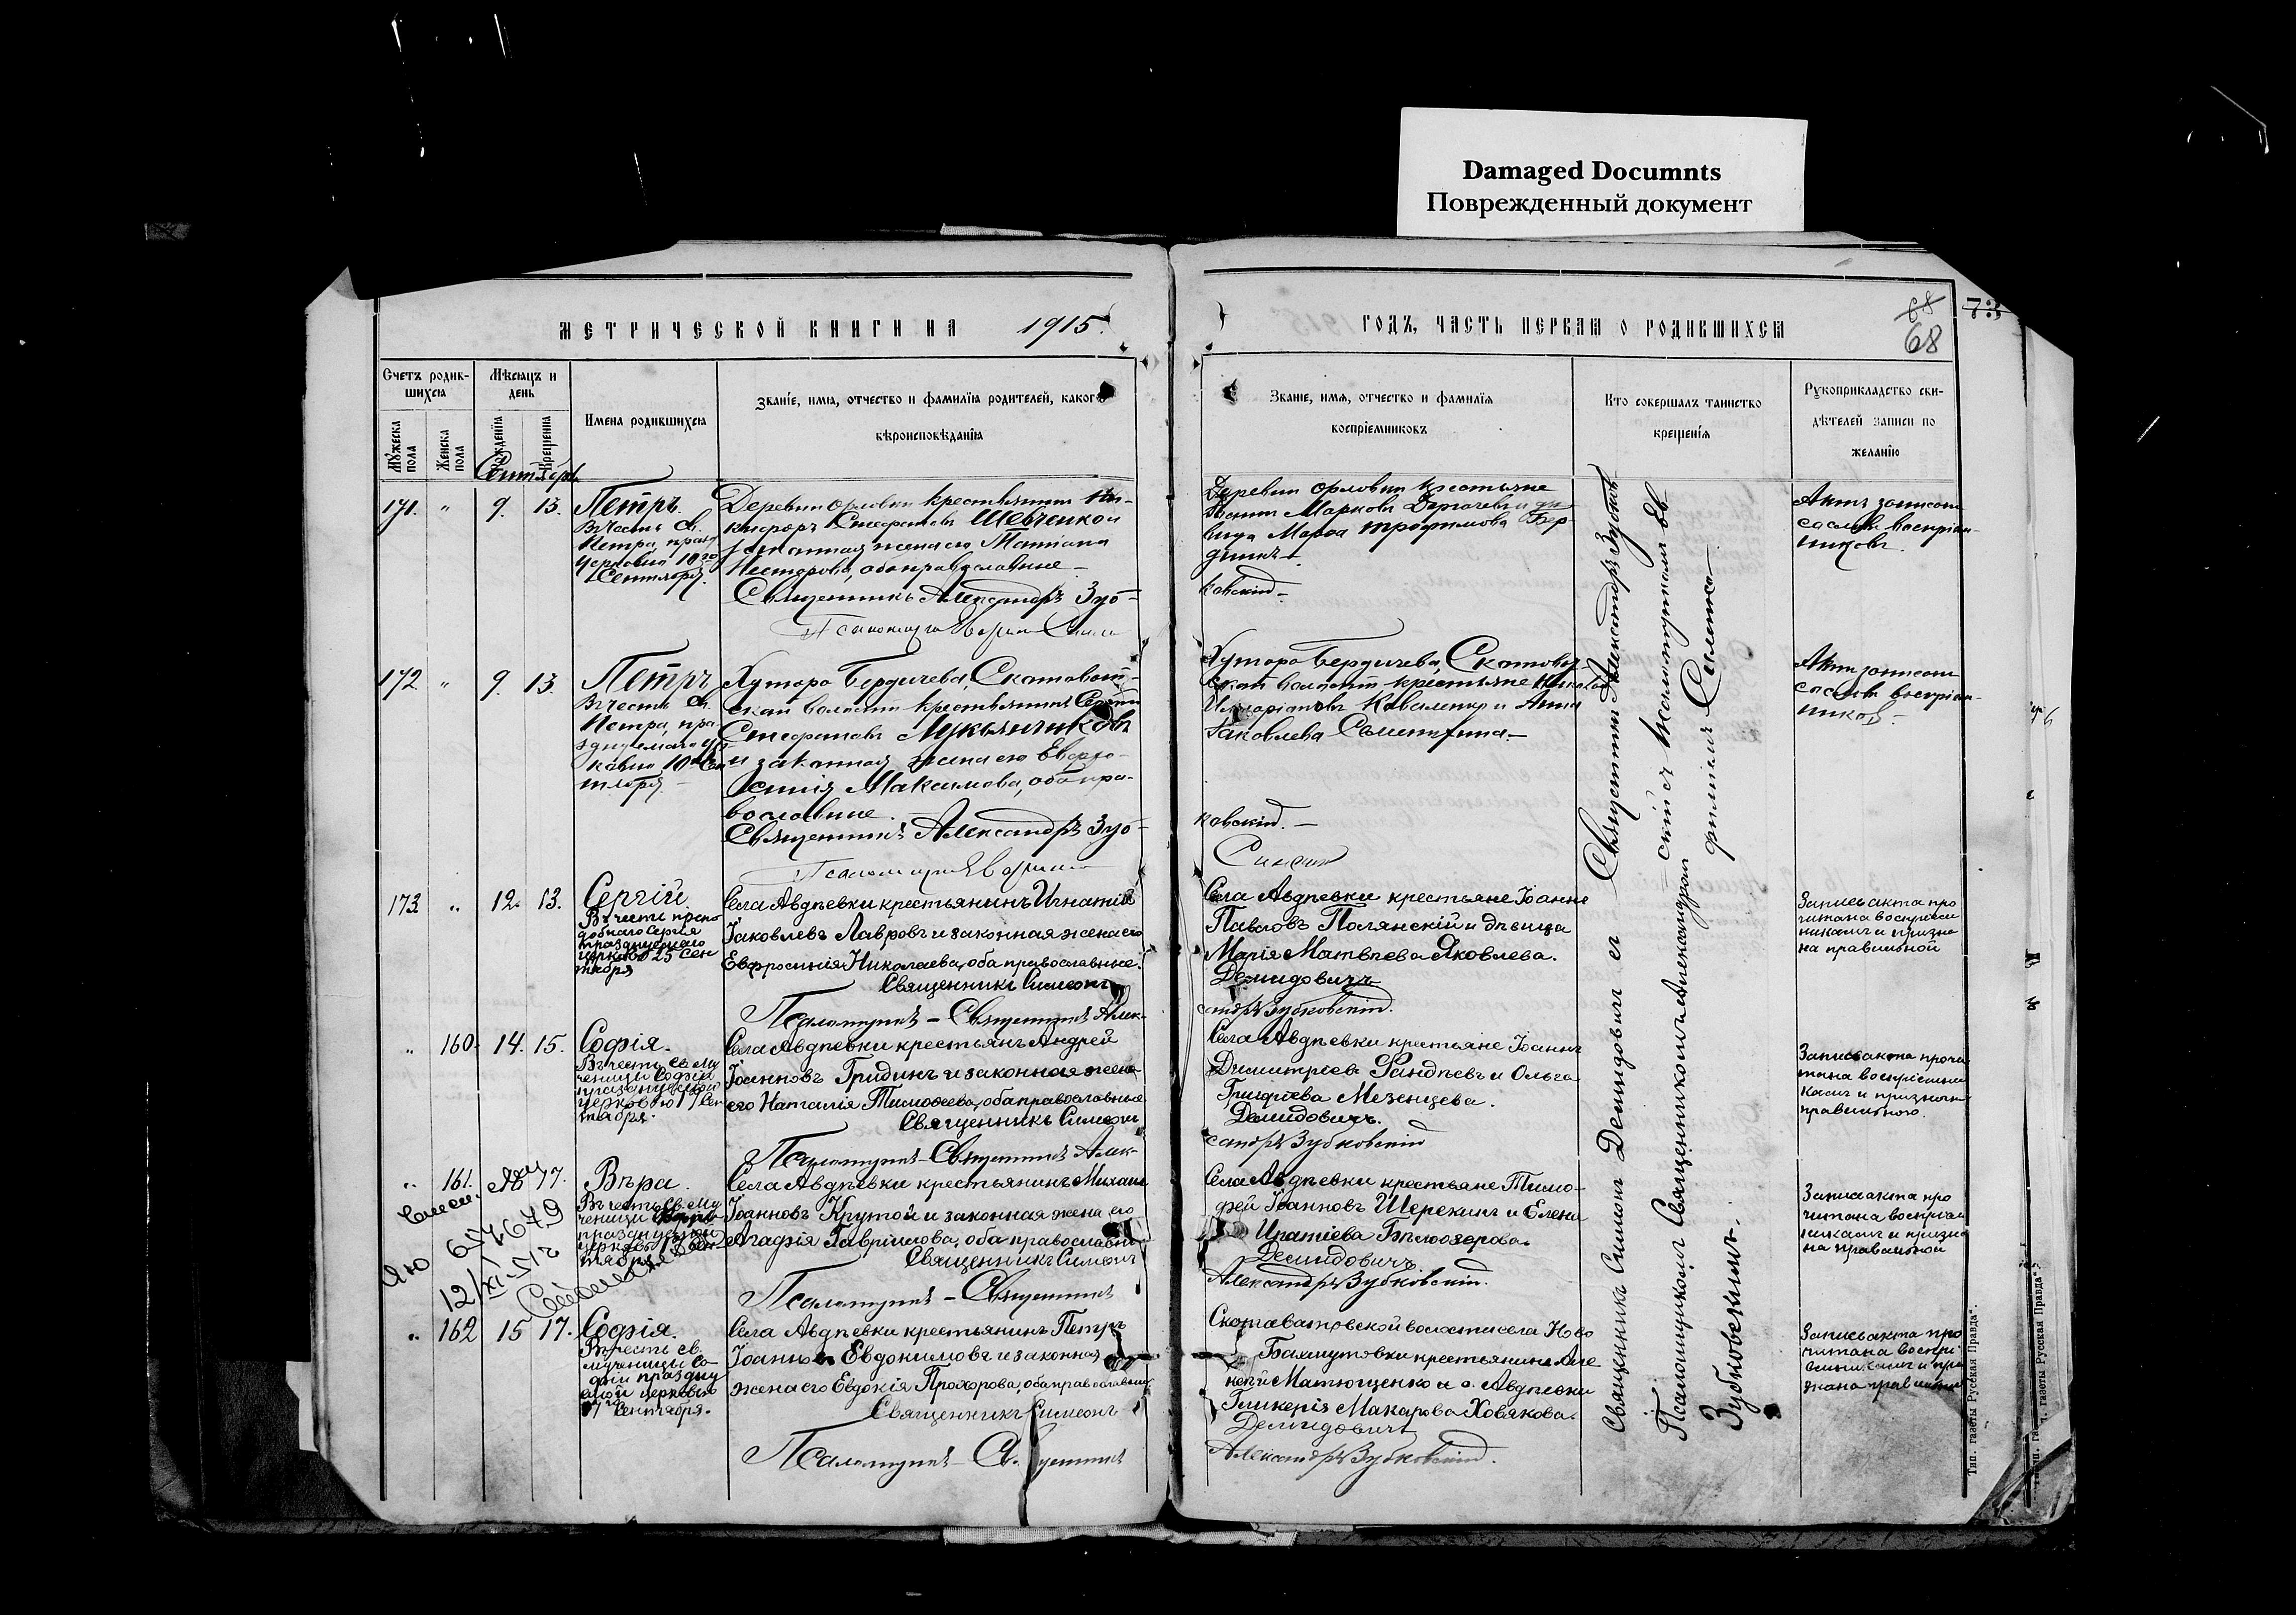 Damaged Documnts
Поврежденный документ
МЕТРИЧЕСКОЙ КНИГИ НА 1915.
ГОДЪ, ЧАСТЬ ПЕРВАЯ О РОДИВШИХСЯ
68
68
73
Счетъ родив-
шихся
Мужеска пола
Женска пола
Мѣсяцъ и
день
рожденія
Крещенія
Имена родившихся
Званіе, имя, отчество и фамилія родителей, какого
вѣроисповѣданія
Званіе, имя, отчество и фамилія
воспріемниковъ
Кто совершалъ таинство
крещенія
Рукоприкладство сви-
дѣтелей записи по
желанію
Сентябрь
171. " 9. 13. Петръ.
Въ честь св.
Петра, празд
церковью 10го
Сентября.
Деревни Орловки крестьянинъ Ни-
кифоръ Стефановъ Шевченко и
законная жена его Татіана
Несторова, оба православные
Священникъ Александръ Зуб-
Деревни Орловки крестьяне
Марковъ Дергачевъ и дѣ
вица Марѳа Трофимова Бер-
ковскій
Актъ записанъ
со словъ воспріем-
никовъ.
172 " 9. 13. Петръ
Въ честь св.
Петра, пра
10го Сен
тября
Хутора Бердичева, Скотоват-
ской волости крестьянинъ Сергій
Стефановъ Лукьянчиковъ
и законная жена его Евфро-
синія Максимова, оба пра-
вославные.
Священникъ Александръ Зуб-
Хутора Бердичева, Скотоват
ской волости крестьяне Николай
Иларіоновъ Коваленко и Анна
Іаковлева
ковскій.
Актъ записанъ
со словъ воспріем-
никовъ.
173 " 12. 13. Сергій.
Въ честь препо
добнаго Сергія
празднуемаго
церковью 25 Сен
тября
Села Авдѣевки крестьянинъ Игнатій
Іаковлевъ Лавровъ и законная жена его
Евфросинія Николаева, оба православные.
Священникъ Симеонъ
Псаломщикъ - Священникъ Алек-
Села Авдѣевки крестьяне Іоаннъ
Павловъ Полянскій и дѣвица
Марія Матвѣева Яковлева.
Демидовичъ
сандръ Зубковскій.
Запись акта про
читана воспріем
никамъ и призна
на правильной
" 160. 14. 15. Софія.
Въ честь св. Му
ченицы Софіи
празднуемой
церковью 17 Сен
тября.
Села Авдѣевки крестьянъ Андрей
Іоанновъ Гридинъ и законная жена
его Наталія Тимоѳеева, оба православные
Священникъ Симеонъ
Псаломщикъ - Священникъ Алек-
Села Авдѣевки крестьяне Іоаннъ
Димитріевъ Фандѣевъ и Ольга
Григоріева Мезенцева.
Демидовичъ.
сандръ Зубковскій
Запись акта прочи
тана воспріемни
камъ и признана
правильною.
" 161. 17. Вѣра.
Въ честь Св. Му
ченицы Вѣры
празднуемой
церковью 17 Сен
тября.
Села Авдѣевки крестьянинъ Михаилъ
Іоанновъ Крутой и законная жена его
Агафія Гавріилова, оба православные
Священникъ Симеонъ
Псаломщикъ - Священникъ
Села Авдѣевки крестьяне Тимо-
фей Іоанновъ Шерекинъ и Елена
Ипатіева Бѣлозерова.
Демидовичъ
Александръ Зубковскій.
Запись акта про
читана воспріем
никамъ и призна
на правильной
" 162 15 17. Софія.
Въ честь св.
мученицы Со-
фіи праздну
емой церковью
17 Сентября.
Села Авдѣевки крестьянинъ Петръ
Іоанновъ Евдокимовъ и законная
жена его Евдокія Прохорова, оба православные
Священникъ Симеонъ
Псаломщикъ - Священникъ
Скотоватовской волости села Ново
Бахмутовки крестьянинъ Але
ксѣй Матющенко и с. Авдѣевки
Гликерія Макарова Ховякова.
Демидовичъ
Александръ Зубковскій.
Запись акта про
читана воспрі
емникамъ и при
знана правильной
Священникъ Симеонъ Демидовичъ съ Священникъ Александръ Зубков
Псаломщикомъ Священникомъ Александромъ
Зубковскимъ.
скій съ псаломщикомъ Ев
фиміемъ
Тип. газеты „Русская Правда“.
Тип. газеты „Русская Правда“.